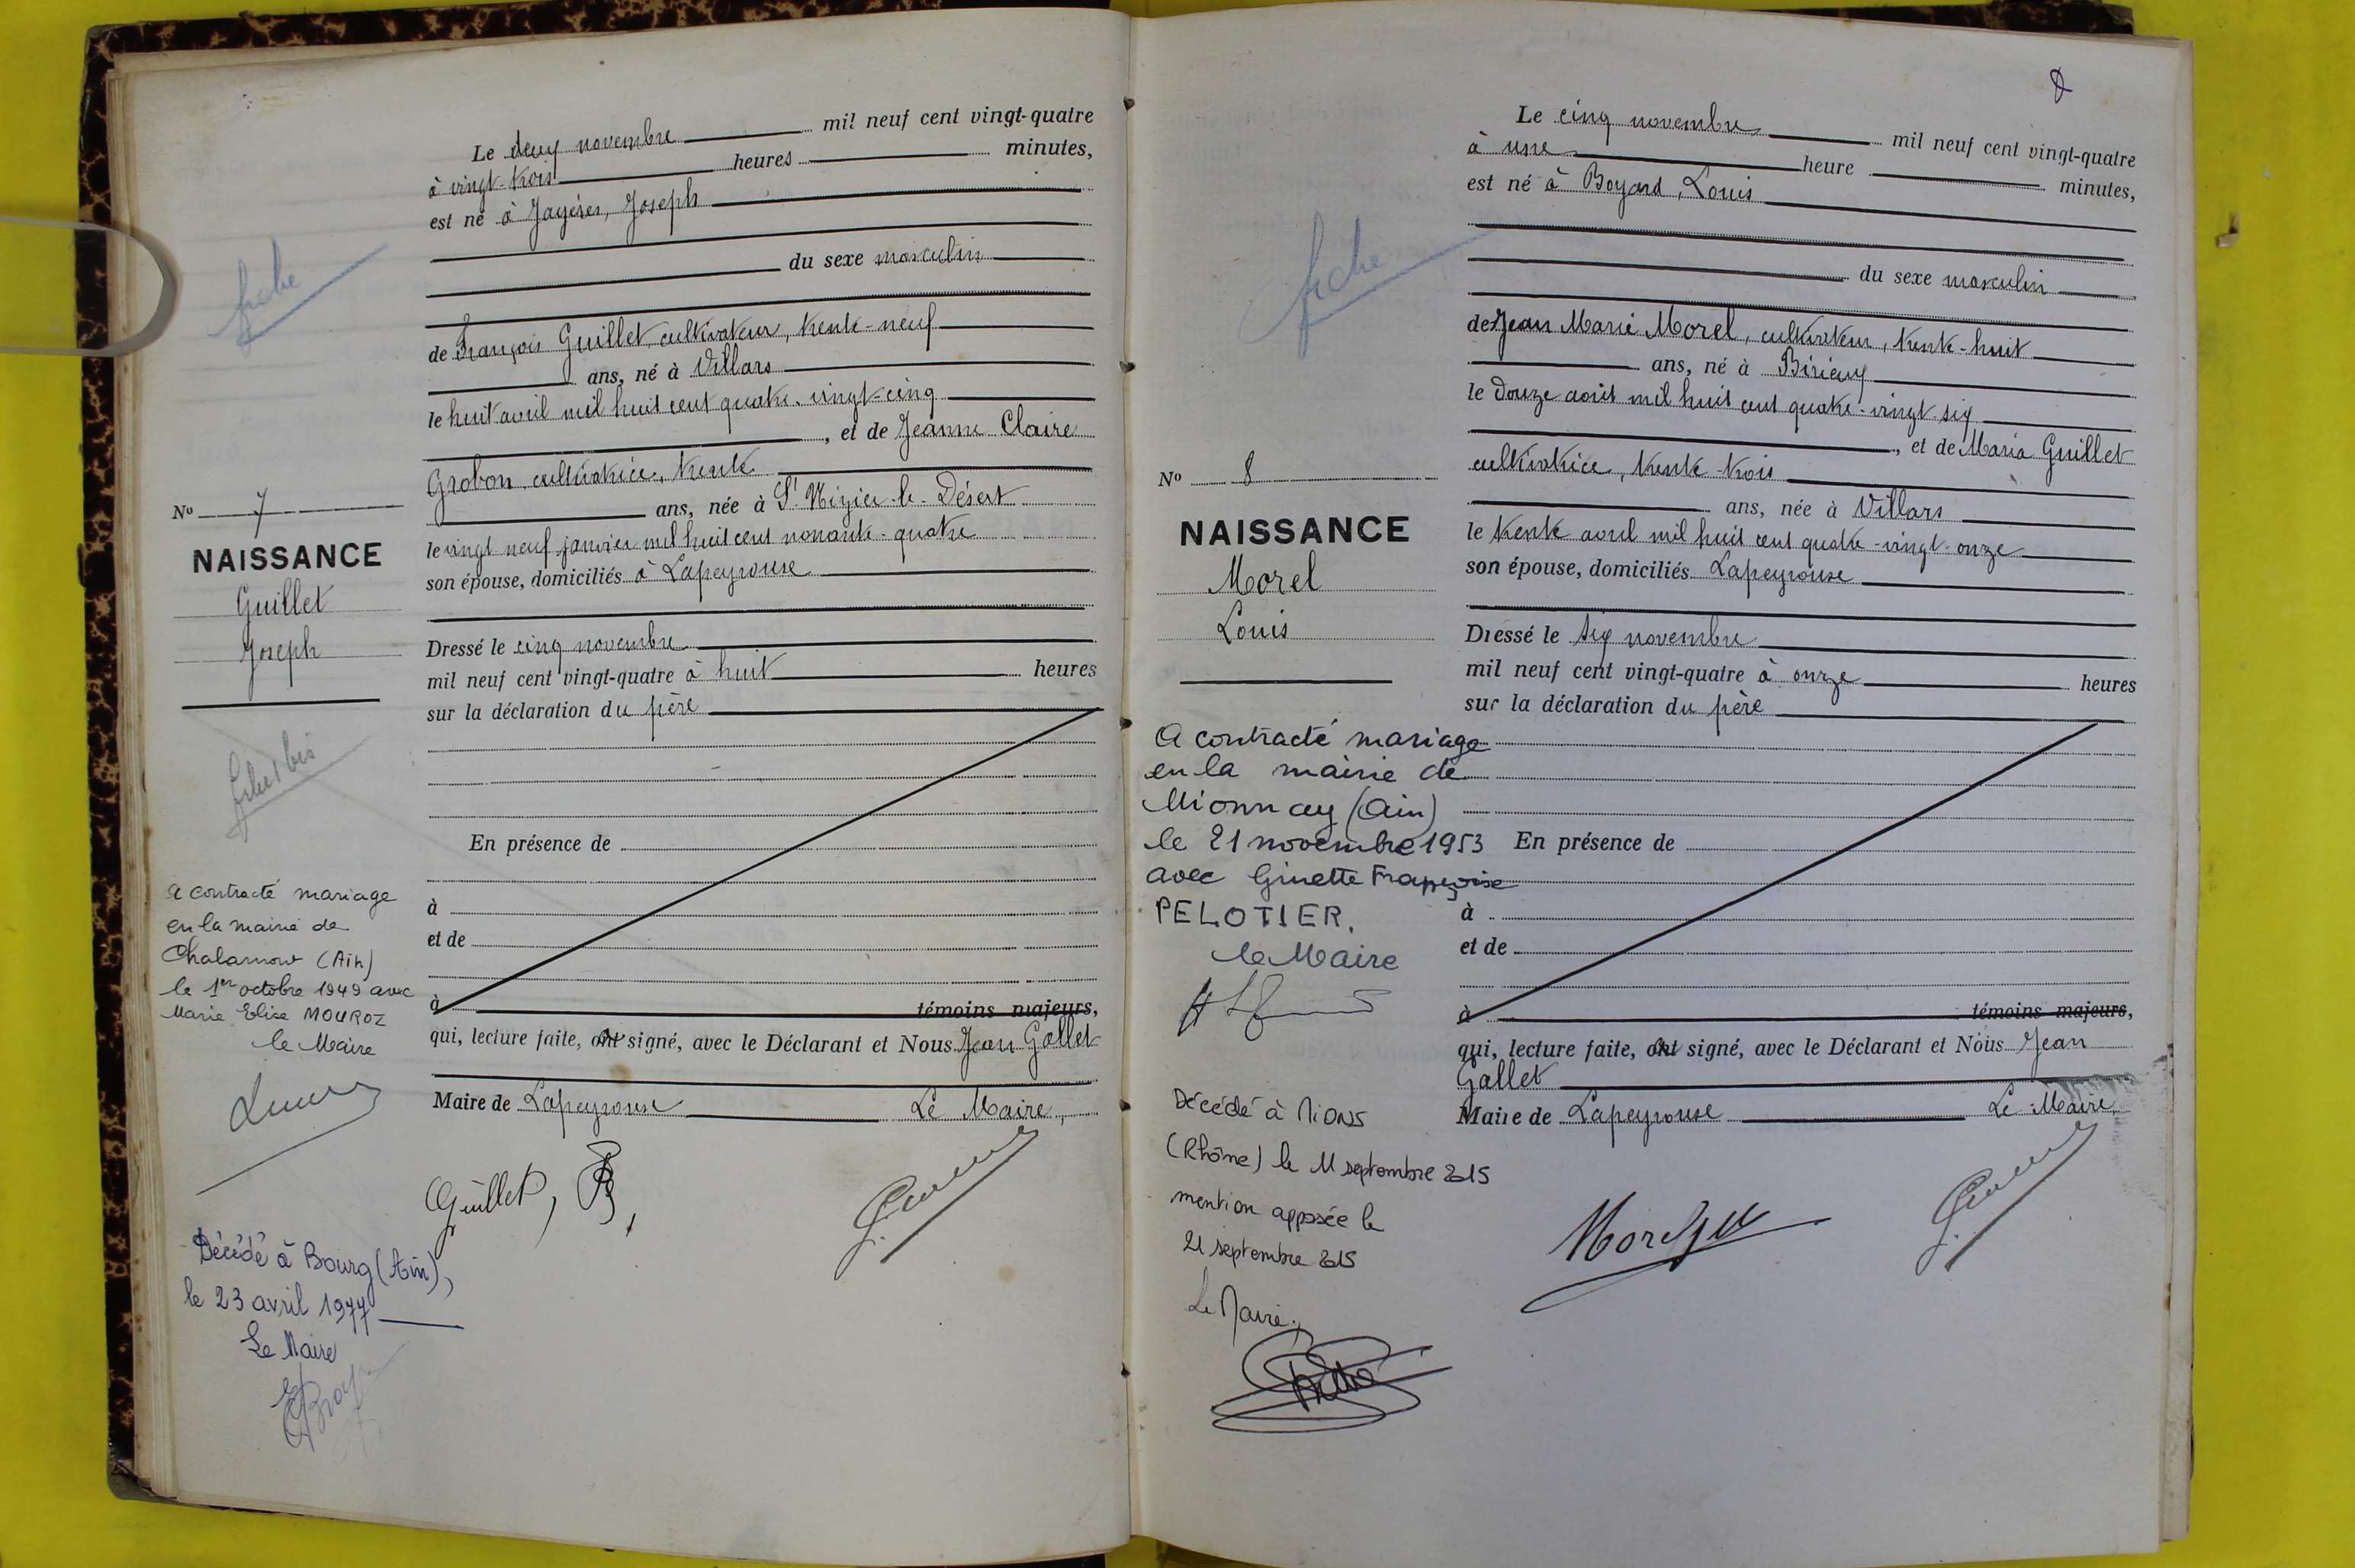 Le deux novembre mil neuf cent vingt-quatre
à vingt-trois heures minutes,
est né à Jayères, Joseph
du sexe masculin
de François Guillet, cultivateur, trente-neuf
ans, né à Villars
le huit avril mil huit cent quatre-vingt-cinq
, et de Jeanne Claire
Grobon cultivatrice, trente
ans, née à St Nizier-le-Désert
le vingt neuf janvier mil huit cent nonante-quatre
son épouse, domiciliés à Lapeyrouse
Dressé le cinq novembre
mil neuf cent vingt-quatre à huit heures
sur la déclaration du père
En présence de
à
et de
à témoins majeurs,
qui, lecture faite, ont signé, avec le Déclarant et Nous Jean Gallet
Maire de Lapeyrouse Le Maire,
Guillet,
fiche
No 7
NAISSANCE
Guillet
Joseph
A contracté mariage
en la mairie de
Chalamont (Ain)
le 1er octobre 1949 avec
Marie Elise MOUROZ
le Maire
Décédé à Bourg (Ain),
le 23 avril 1977
Le Maire
8
Le cinq novembre mil neuf cent vingt-quatre
à une heure minutes,
est né à Boyard, Louis
du sexe masculin
de Jean Marie Morel, cultivateur, trente-huit
ans, né à Birieux
le douze août mil huit cent quatre-vingt-six
, et de Maria Guillet
cultivatrice, trente-trois
ans, née à Villars
le trente avril mil huit cent quatre-vingt-onze
son épouse, domiciliés Lapeyrouse
Dressé le six novembre
mil neuf cent vingt-quatre à onze heures
sur la déclaration du père
En présence de
à
et de
à témoins majeurs,
qui, lecture faite, ont signé, avec le Déclarant et Nous Jean
Gallet
Maire de Lapeyrouse Le Maire,
Morel
fiche
No 8
NAISSANCE
Morel
Louis
A contracté mariage
en la mairie de
Mionnay (Ain)
le 21 novembre 1953
avec Ginette Françoise
PELOTIER.
le Maire
Décédé à Mions
(Rhône) le 11 septembre 2015
mention apposée le
21 septembre 2015
Le Maire,